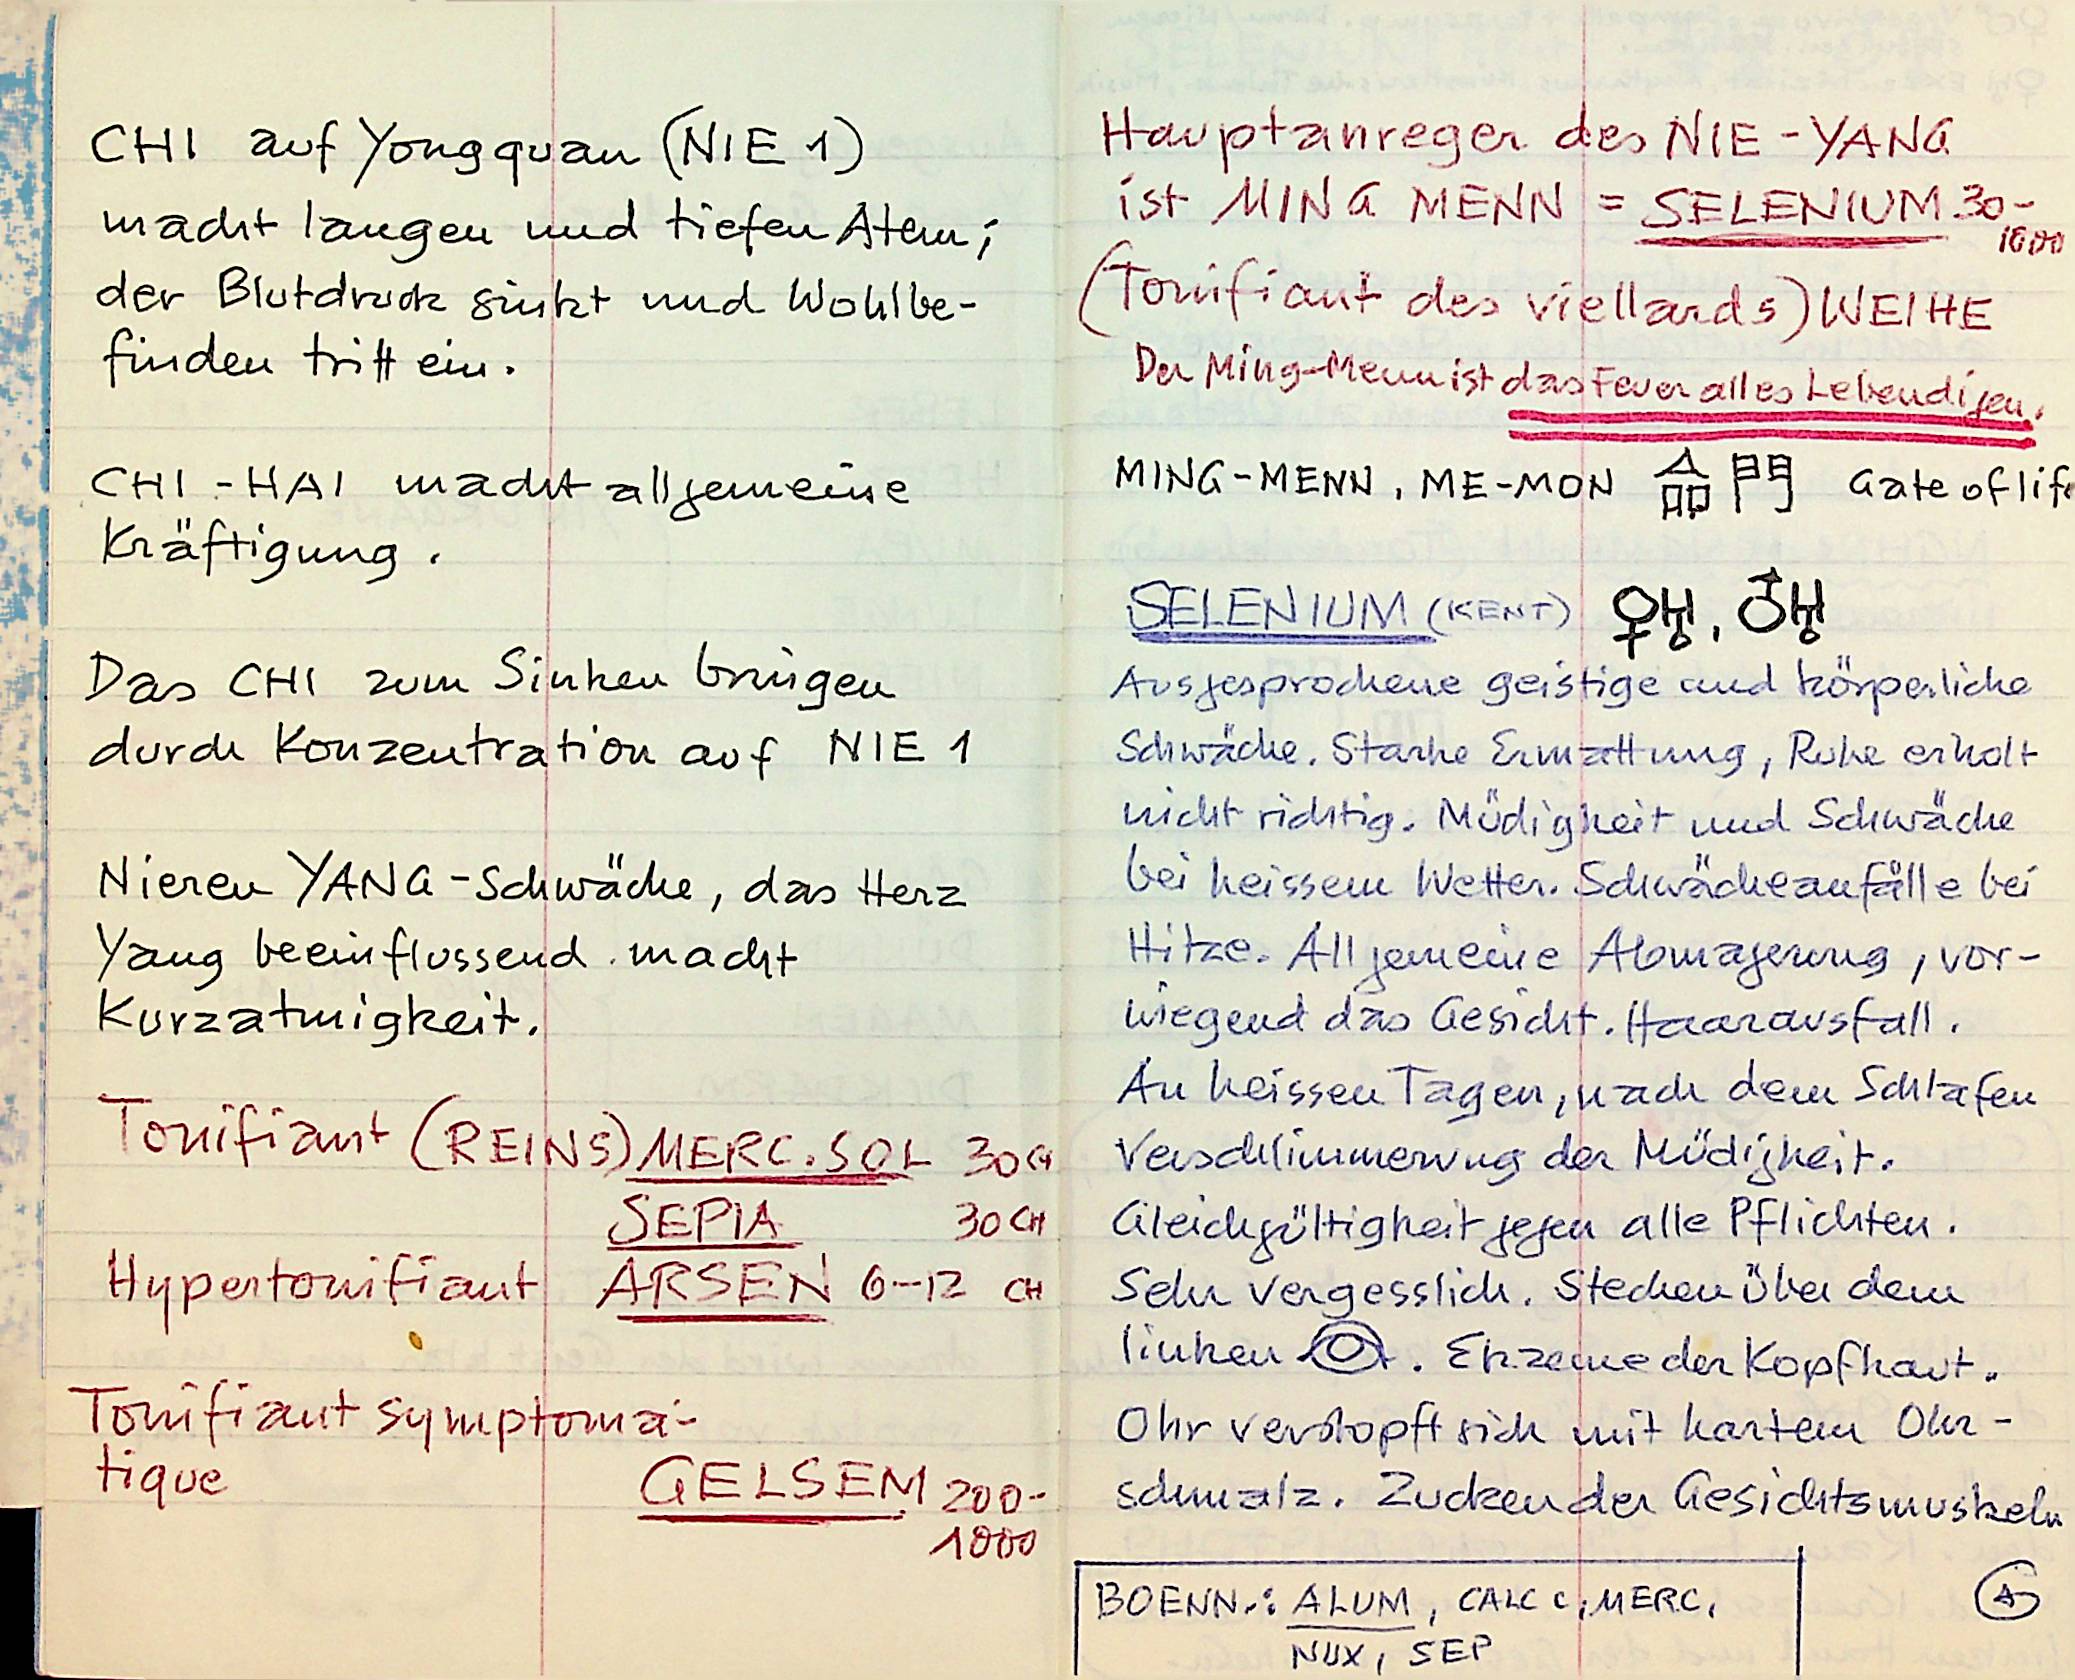 CHI auf Yongquan (NIE 1)
macht langen und tiefen Atem;
der Blutdruck sinkt und Wohlbe-
finden tritt ein.
CHI-HAI macht allgemeine
Kräftigung.
Das CHI zum Sinken bringen
durch Konzentration auf NIE 1
Nieren YANG-Schwäche, das Herz
Yang beeinflussend. macht
Kurzatmigkeit.
Tonifiant (REINS) MERC. SOL 30 CH
SEPIA 30 CH
Hypertonifiant ARSEN 6-12 CH
Tonifiant symptoma-
tique
GELSEM 200-
1000
Hauptanreger des NIE-YANG
ist MING MENN = SELENIUM 30-
1000
(Tonifiant des viellards) WEIHE
Der Ming-Menn ist das Feuer alles Lebendigen.
MING-MENN, ME-MON 命門 Gate of life
SELENIUM (KENT) ♀, ♂
Ausgesprochene geistige und körperliche
Schwäche. Starke Ermattung, Ruhe erholt
nicht richtig. Müdigkeit und Schwäche
bei heissem Wetter. Schwächeanfälle bei
Hitze. Allgemeine Abmagerung, vor-
wiegend das Gesicht. Haarausfall.
An heissen Tagen, nach dem Schlafen
Verschlimmerung der Müdigkeit.
Gleichgültigkeit gegen alle Pflichten.
Sehr vergesslich. Stechen über dem
linken . Ekzeme der Kopfhaut.
Ohr verstopft sich mit hartem Ohr-
schmalz. Zucken der Gesichtsmuskeln
BOENN.: ALUM, CALC C, MERC,
NUX, SEP
A